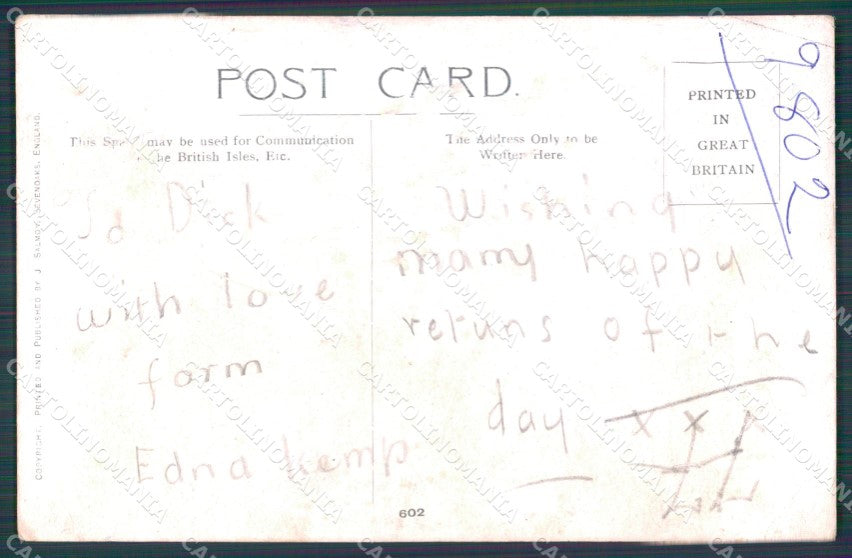 POST CARD.
This Space may be used for Communication
the British Isles, Etc.
The Address Only to be
Written Here
PRINTED
IN
GREAT
BRITAIN
9802
Dick
with love
form
Edna kemp
Wishing
many happy
retuns of the
day x x x
602
COPYRIGHT. PRINTED AND PUBLISHED BY J. SALMON, SEVENOAKS, ENGLAND.
CARTOLINOMANIA